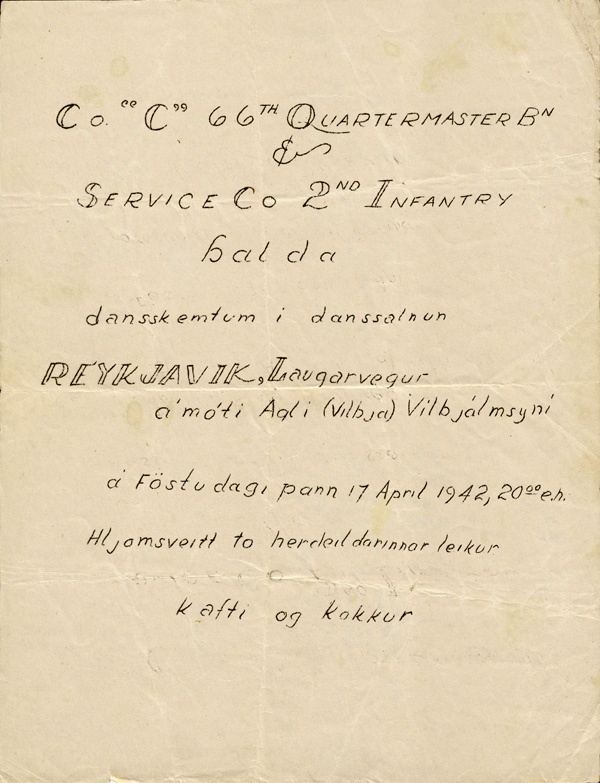 Co. "C" 66TH QUARTERMASTER BN
&
SERVICE CO 2ND INFANTRY
halda
dansskemtum i danssalnun
REYKJAVIK, Laugarvegur
á móti Agli (Vilbja) Vilbjálmsyni
á Föstudagi pann 17 April 1942, 2000 e.h.
Hljomsveitt to herdeildarinnar leikur
kaffi og kokkur